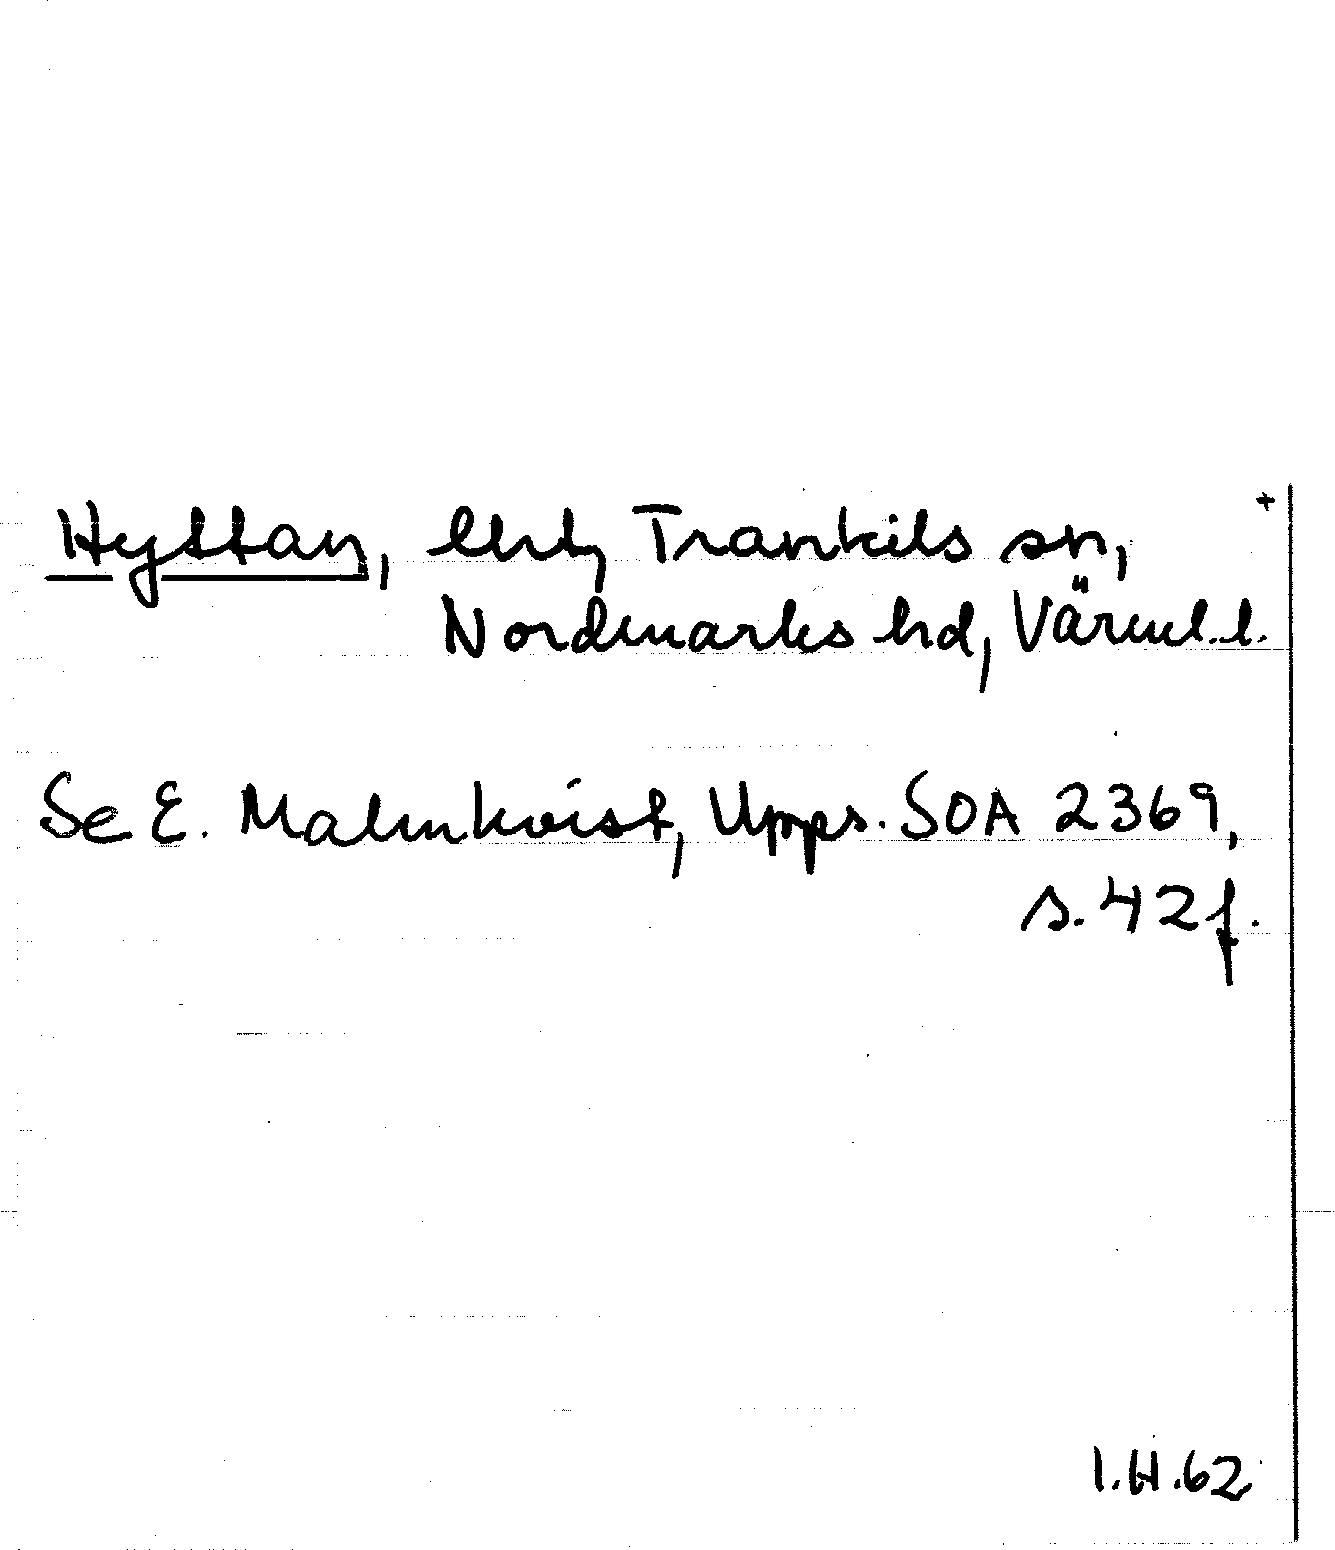 Hyttan, lht, Trankils sn, +
Nordmarks hd, Värml. l.
Se E. Malmkvist, Upps. SOA 2369,
s. 42 f.
I.H.62